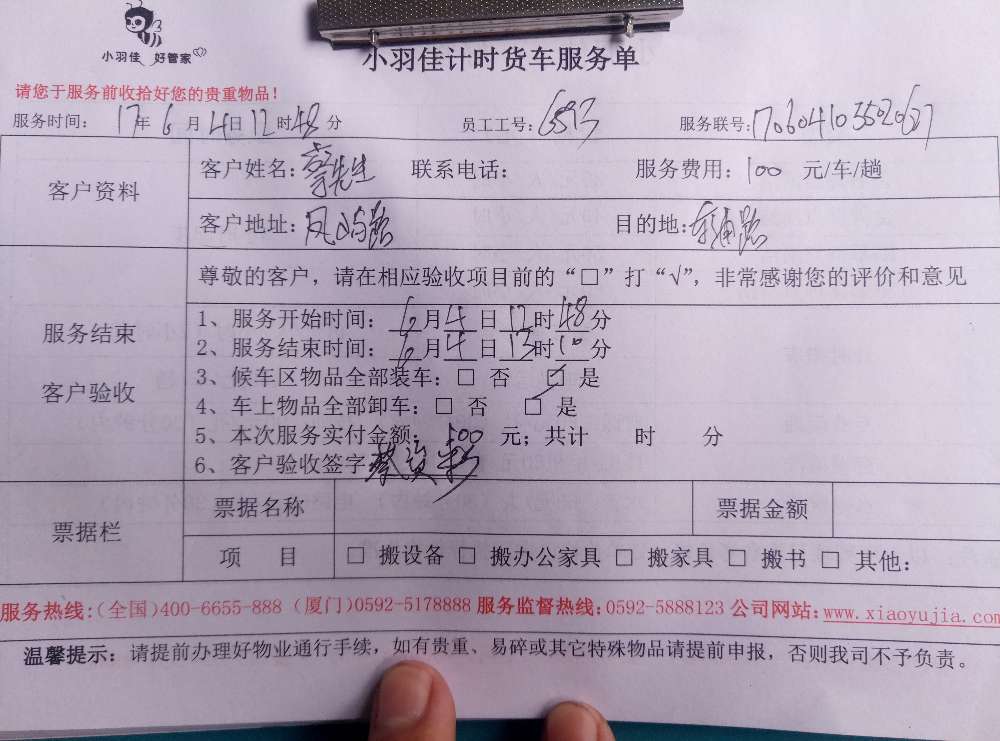 小羽佳 好管家
小羽佳计时货车服务单
请您于服务前收拾好您的贵重物品！
服务时间： 17年6月4日12时48分 员工工号：6593 服务联号：
客户资料
客户姓名：蔡先生 联系电话： 服务费用：100 元/车/趟
客户地址：凤屿路 目的地：
服务结束
客户验收
尊敬的客户，请在相应验收项目前的“□”打“√”，非常感谢您的评价和意见
1、服务开始时间：6月4日12时48分
2、服务结束时间：6月4日13时10分
3、候车区物品全部装车：□ 否 □ 是
4、车上物品全部卸车：□ 否 □ 是
5、本次服务实付金额：100 元；共计 时 分
6、客户验收签字
票据栏
票据名称 票据金额
项 目 □ 搬设备 □ 搬办公家具 □ 搬家具 □ 搬书 □ 其他：
服务热线：（全国）400-6655-888（厦门）0592-5178888 服务监督热线：0592-5888123 公司网站：www.xiaoyujia.com
温馨提示：请提前办理好物业通行手续，如有贵重、易碎或其它特殊物品请提前申报，否则我司不予负责。